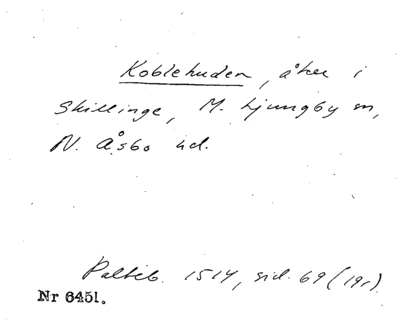 Koblehuden, åker i
Skillinge, M. Ljungby sn,
N. Åsbo hd.
Palteb. 1514, sid. 69 (191).
Nr 6451.